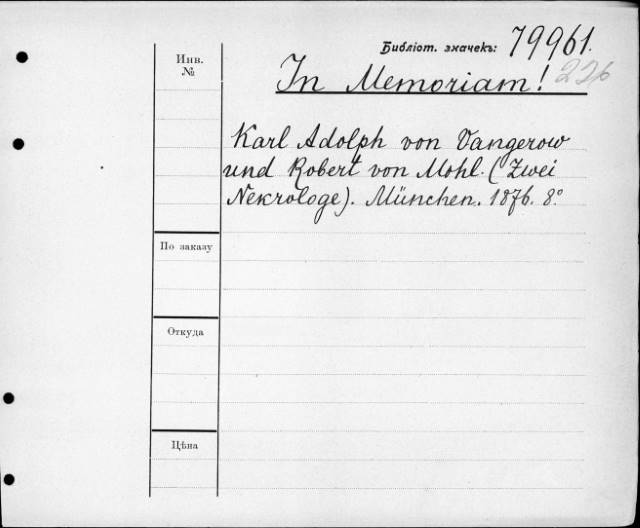 Библіот. значекъ: 79961.
226
Инв.
№
In Memoriam!
Karl Adolph von Vangerow
und Robert von Mohl. (Zwei
Nekrologe). München. 1876. 8°
По заказу
Откуда
Цѣна